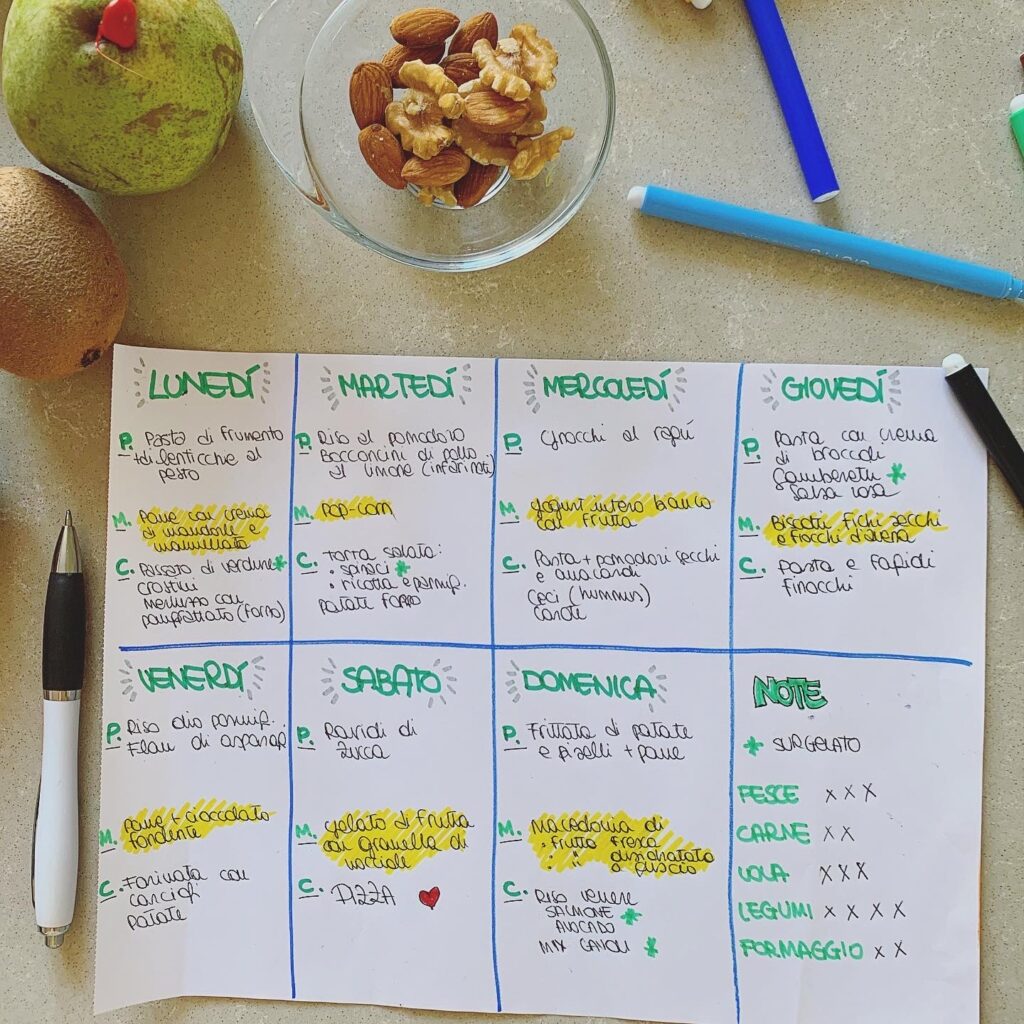 LUNEDÍ
P. Pasta di frumento
+di lenticche al
pesto
M. Pane con crema
di mandorle e
marmellata
C. Passato di verdure *
crostini
merluzzo con
pangrattato (forno)
MARTEDÍ
P. Riso al pomodoro
Bocconcini di pollo
al limone (infarinati)
M. Pop-corn
C. torta salata:
• spinaci *
• ricotta e parmig.
patate forno
MERCOLEDÍ
P. Gnocchi al ragú
M. yogurt intero bianco
con frutta
C. Pasta + pomodori secchi
e anacardi
ceci (hummus)
carote
GIOVEDÍ
P. Pasta con crema
di broccoli
Gamberetti *
salsa rosa
M. Biscotti, fichi secchi
e fiocchi d'avena
C. Pasta e fagioli
finocchi
VENERDÍ
P. Riso olio parmig.
Flan di asparagi
M. pane + cioccolato
fondente
C. Farinata con
carciofi
patate
SABATO
P. Ravioli di
zucca
M. gelato di frutta
con granella di
nocciole
C. PIZZA ♥
DOMENICA
P. Frittata di patate
e piselli + pane
M. Macedonia di
• frutta fresca
• " disidratata
a guscio
C. Riso venere
SALMONE *
AVOCADO
MIX CAVOLI *
NOTE
* SURGELATO
PESCE x x x
CARNE x x
UOVA x x x
LEGUMI x x x x
FORMAGGIO x x